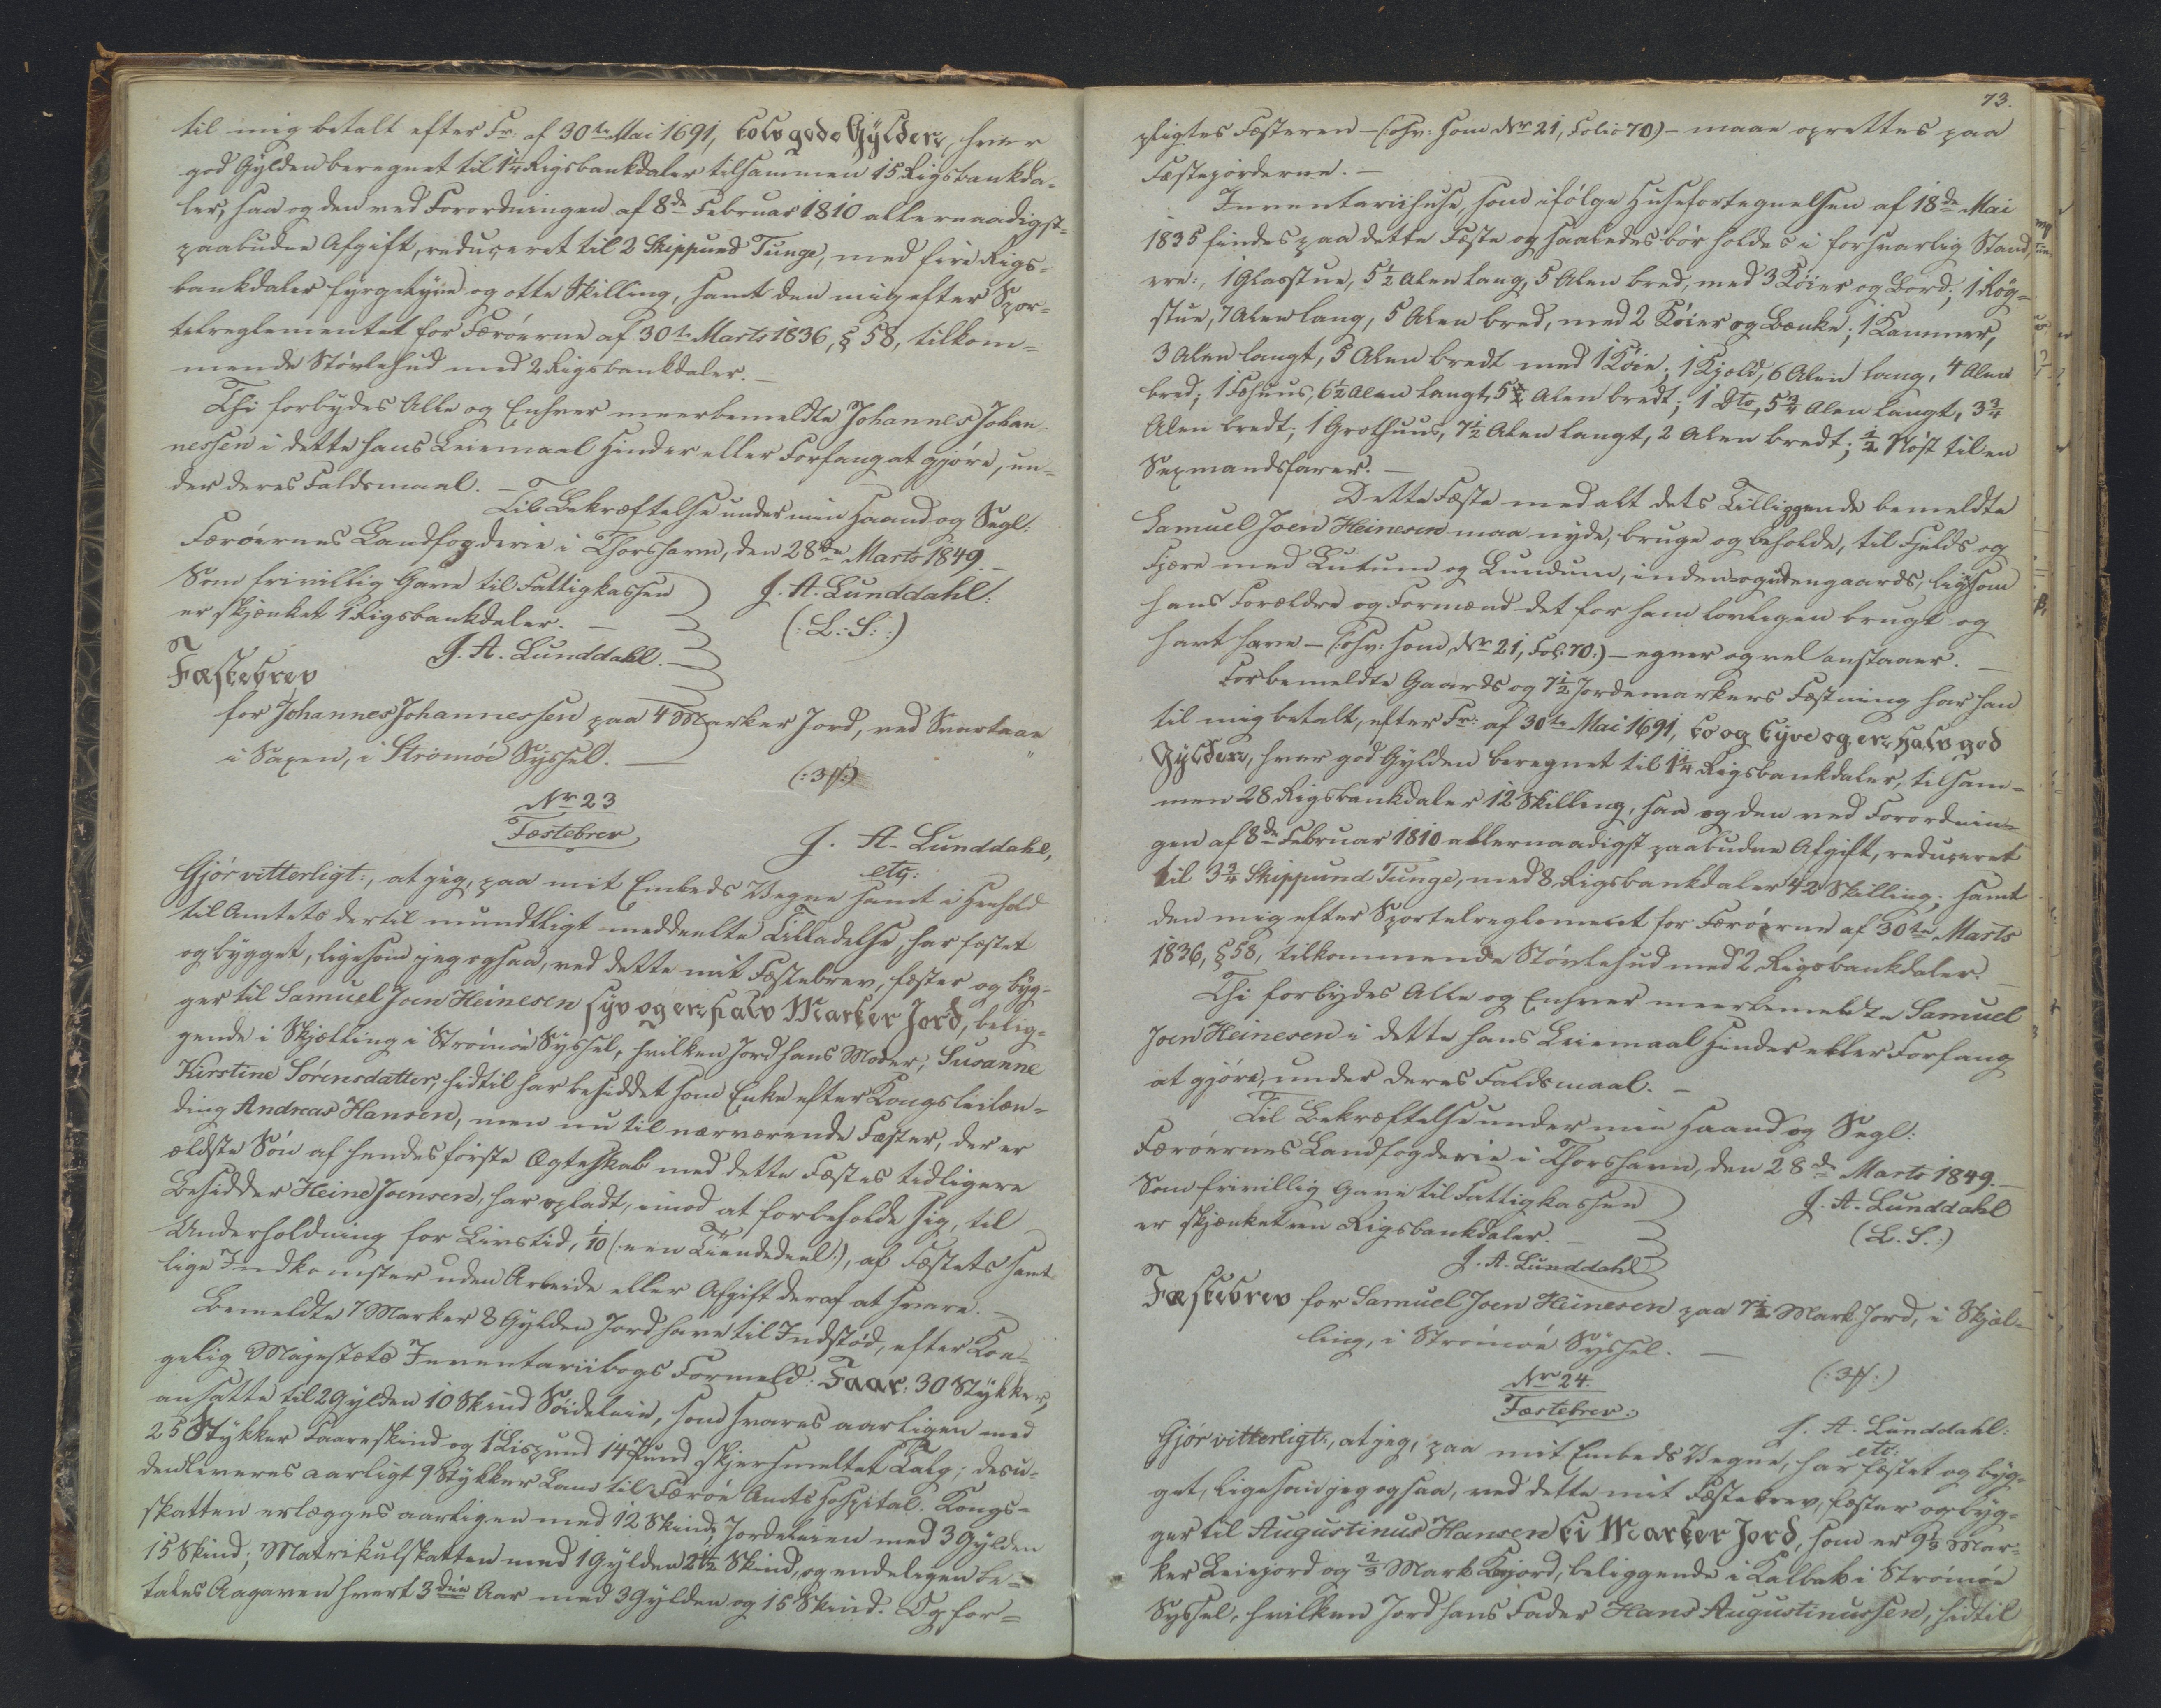 til mig betalt efter Fr: af 30te Mai 1691, tolv gode Gylden, hver
god Gylden beregnet til 1¼ Rigsbankdaler tilsammen 15 Rigsbankda-
ler, saa og den ved Forordningen af 8de Februar 1810 allernaadigst-
paabudne Afgift, reduceret til 2 Skippund Tunge, med fire Rigs-
bankdaler fyrgetyve og otte Skilling, samt den mig efter Spor-
telreglementet for Færöerne af 30te Marts 1836, § 58, tilkom-
mende Stövlehud med 2 Rigsbankdaler.—
Thi forbydes Alle og Enhver meerbemeldte Johannes Johan-
nessen i dette hans Leiemaal Hinder eller Forfang at gjöre, un-
der deres Faldsmaal.—
Til Bekræftelse under min Haand og Segl:
Færöernes Landfogderie i Thorshavn, den 28de Marts 1849.—
Som frivillig Gave til Fattigkassen
er skjænket 1 Rigsbankdaler.—
J. A. Lunddahl.
J. A. Lunddahl:
(:L:S:)
Fæstebrev
for Johannes Johannessen paa 4 Marker Jord, ved Svartaae
i Saxen, i Strömöe Syssel.—
(:3ß:)
Nr 23
Fæstebrev
J. A. Lunddahl,
etc:
Gjör vitterligt:, at jeg, paa mit Embeds Vegne samt i Henhold
til Amtets dertil mundtligt meddeelte Tilladelse, har fæstet
og bygget, ligesom jeg ogsaa, ved dette mit Fæstebrev, fæster og byg-
ger til Samuel Joen Heinesen syv og en halv Marker Jord, belig-
gende i Skjælling i Strömöe Syssel, hvilken Jord hans Moder, Susanne
Kirstine Sörensdatter, hidtil har besiddet som Enke efter Kongsleilæn-
ding Andreas Hansen, men nu til nærværende Fæster, der er
ældste Sön af hendes förste Ægteskab med dette Fæstes tidligere
Besidder Heine Joensen, har opladt, imod at forbeholde sig, til
Underholdning for Livstid, 1/10 (:een Tiendedeel:), af Fæstets samt-
lige Indkomster uden Arbeide eller Afgift deraf at svare.—
Bemeldte 7 Marker 8 Gylden Jord have til Indstöd, efter Kon-
gelig Majestæts Inventariibogs Formeld: Faar: 30 Stykker,
ansatte til 2 Gylden 10 Skind Söideleie, som svares aarligen med
25 Stykker Faareskind og 1 Lispund 14 Pund skjersmeltet Talg; desu-
den leveres aarligt 9 Stykker Lam til Færöe Amts Hospital. Kongs-
skatten erlægges aarligen med 12 Skind; Jordeleien med 3 Gylden
15 Skind; Matrikulskatten med 1 Gylden 2½ Skind, og endeligen be-
tales Aagaven hvert 3die Aar med 3 Gylden og 15 Skind. Og for-
73.
pligtes Fæsteren — (:ofv: som Nr 21, Folio 70) — maae oprettes paa
Fæstejorderne.—
Inventariihuse, som ifölge Husefortegnelsen af 18de Mai
1835 findes paa dette Fæste og saaledes bör holdes i forsvarlig Stand,
ere:, 1 Glasstue, 5½ Alen lang, 5 Alen bred, med 3 Köier og Bord; 1 Rög-
stue, 7 Alen lang, 5 Alen bred, med 2 Köier og Bænke; 1 Kammer,
3 Alen langt, 5 Alen bredt med 1 Köie; 1 Kjeld, 6 Alen lang, 4 Alen
bred; 1 Fæhuus, 6½ Alen langt, 5½ Alen bredt; 1 Dto, 5¾ Alen langt, 3¾
Alen bredt; 1 Grothuus, 7½ Alen langt, 2 Alen bredt; ½ Nöst til en
Sexmandsfarer.—
Dette Fæste med alt dets Tilliggende bemeldte
Samuel Joen Heinesen maa nyde, bruge og beholde, til Fjelds og
Fjære med Lutum og Lundum, inden og uden gaards, ligesom
hans Forældre og Formænd det for ham lovligen brugt og
havt have — (:ofv: som Nr 21, Fol: 70:) — egner og vel anstaaer.—
For bemeldte Gaards og 7½ Jordemarkers Fæstning har han
til mig betalt, efter Fr: af 30te Mai 1691, to og tyve og en halv god
Gylden, hver god Gylden beregnet til 1¼ Rigsbankdaler, tilsam-
men 28 Rigsbankdaler 12 Skilling, saa og den ved Forordnin-
gen af 8de Februar 1810 allernaadigst paabudne Afgift, reduceret
til 3¾ Skippund Tunge, med 8 Rigsbankdaler 42 Skilling; samt
den mig efter Sportelreglementet for Færöerne af 30te Marts
1836, § 58, tilkommende Stövlehud med 2 Rigsbankdaler.—
Thi forbydes Alle og Enhver meerbemeldte Samuel
Joen Heinesen i dette hans Leiemaal Hinder eller Forfang
at gjöre, under deres Faldsmaal.—
Til Bekræftelse under min Haand og Segl:
Færöernes Landfogderie i Thorshavn, den 28de Marts 1849.—
Som frivillig Gave til Fattigkassen
er skjænket een Rigsbankdaler.—
J. A. Lunddahl
J. A. Lunddahl
(L. S.:)
Fæstebrev for Samuel Joen Heinesen paa 7½ Mark Jord, i Skjæl-
ling, i Strömöe Syssel.—
(:3ß:)
Nr 24.
Fæstebrev:
J. A. Lunddahl:
etc:
Gjör vitterligt:, at jeg, paa mit Embeds Vegne, har fæstet og byg-
get, ligesom jeg ogsaa, ved dette mit Fæstebrev, fæster og byg-
ger til Augustinus Hansen ti Marker Jord, som er 9⅓ Mar-
ker Leiejord og ⅔ Mark Kjord, beliggende i Kalbak i Strömöe
Syssel, hvilken Jord hans Fader Hans Augustinussen, hidtil